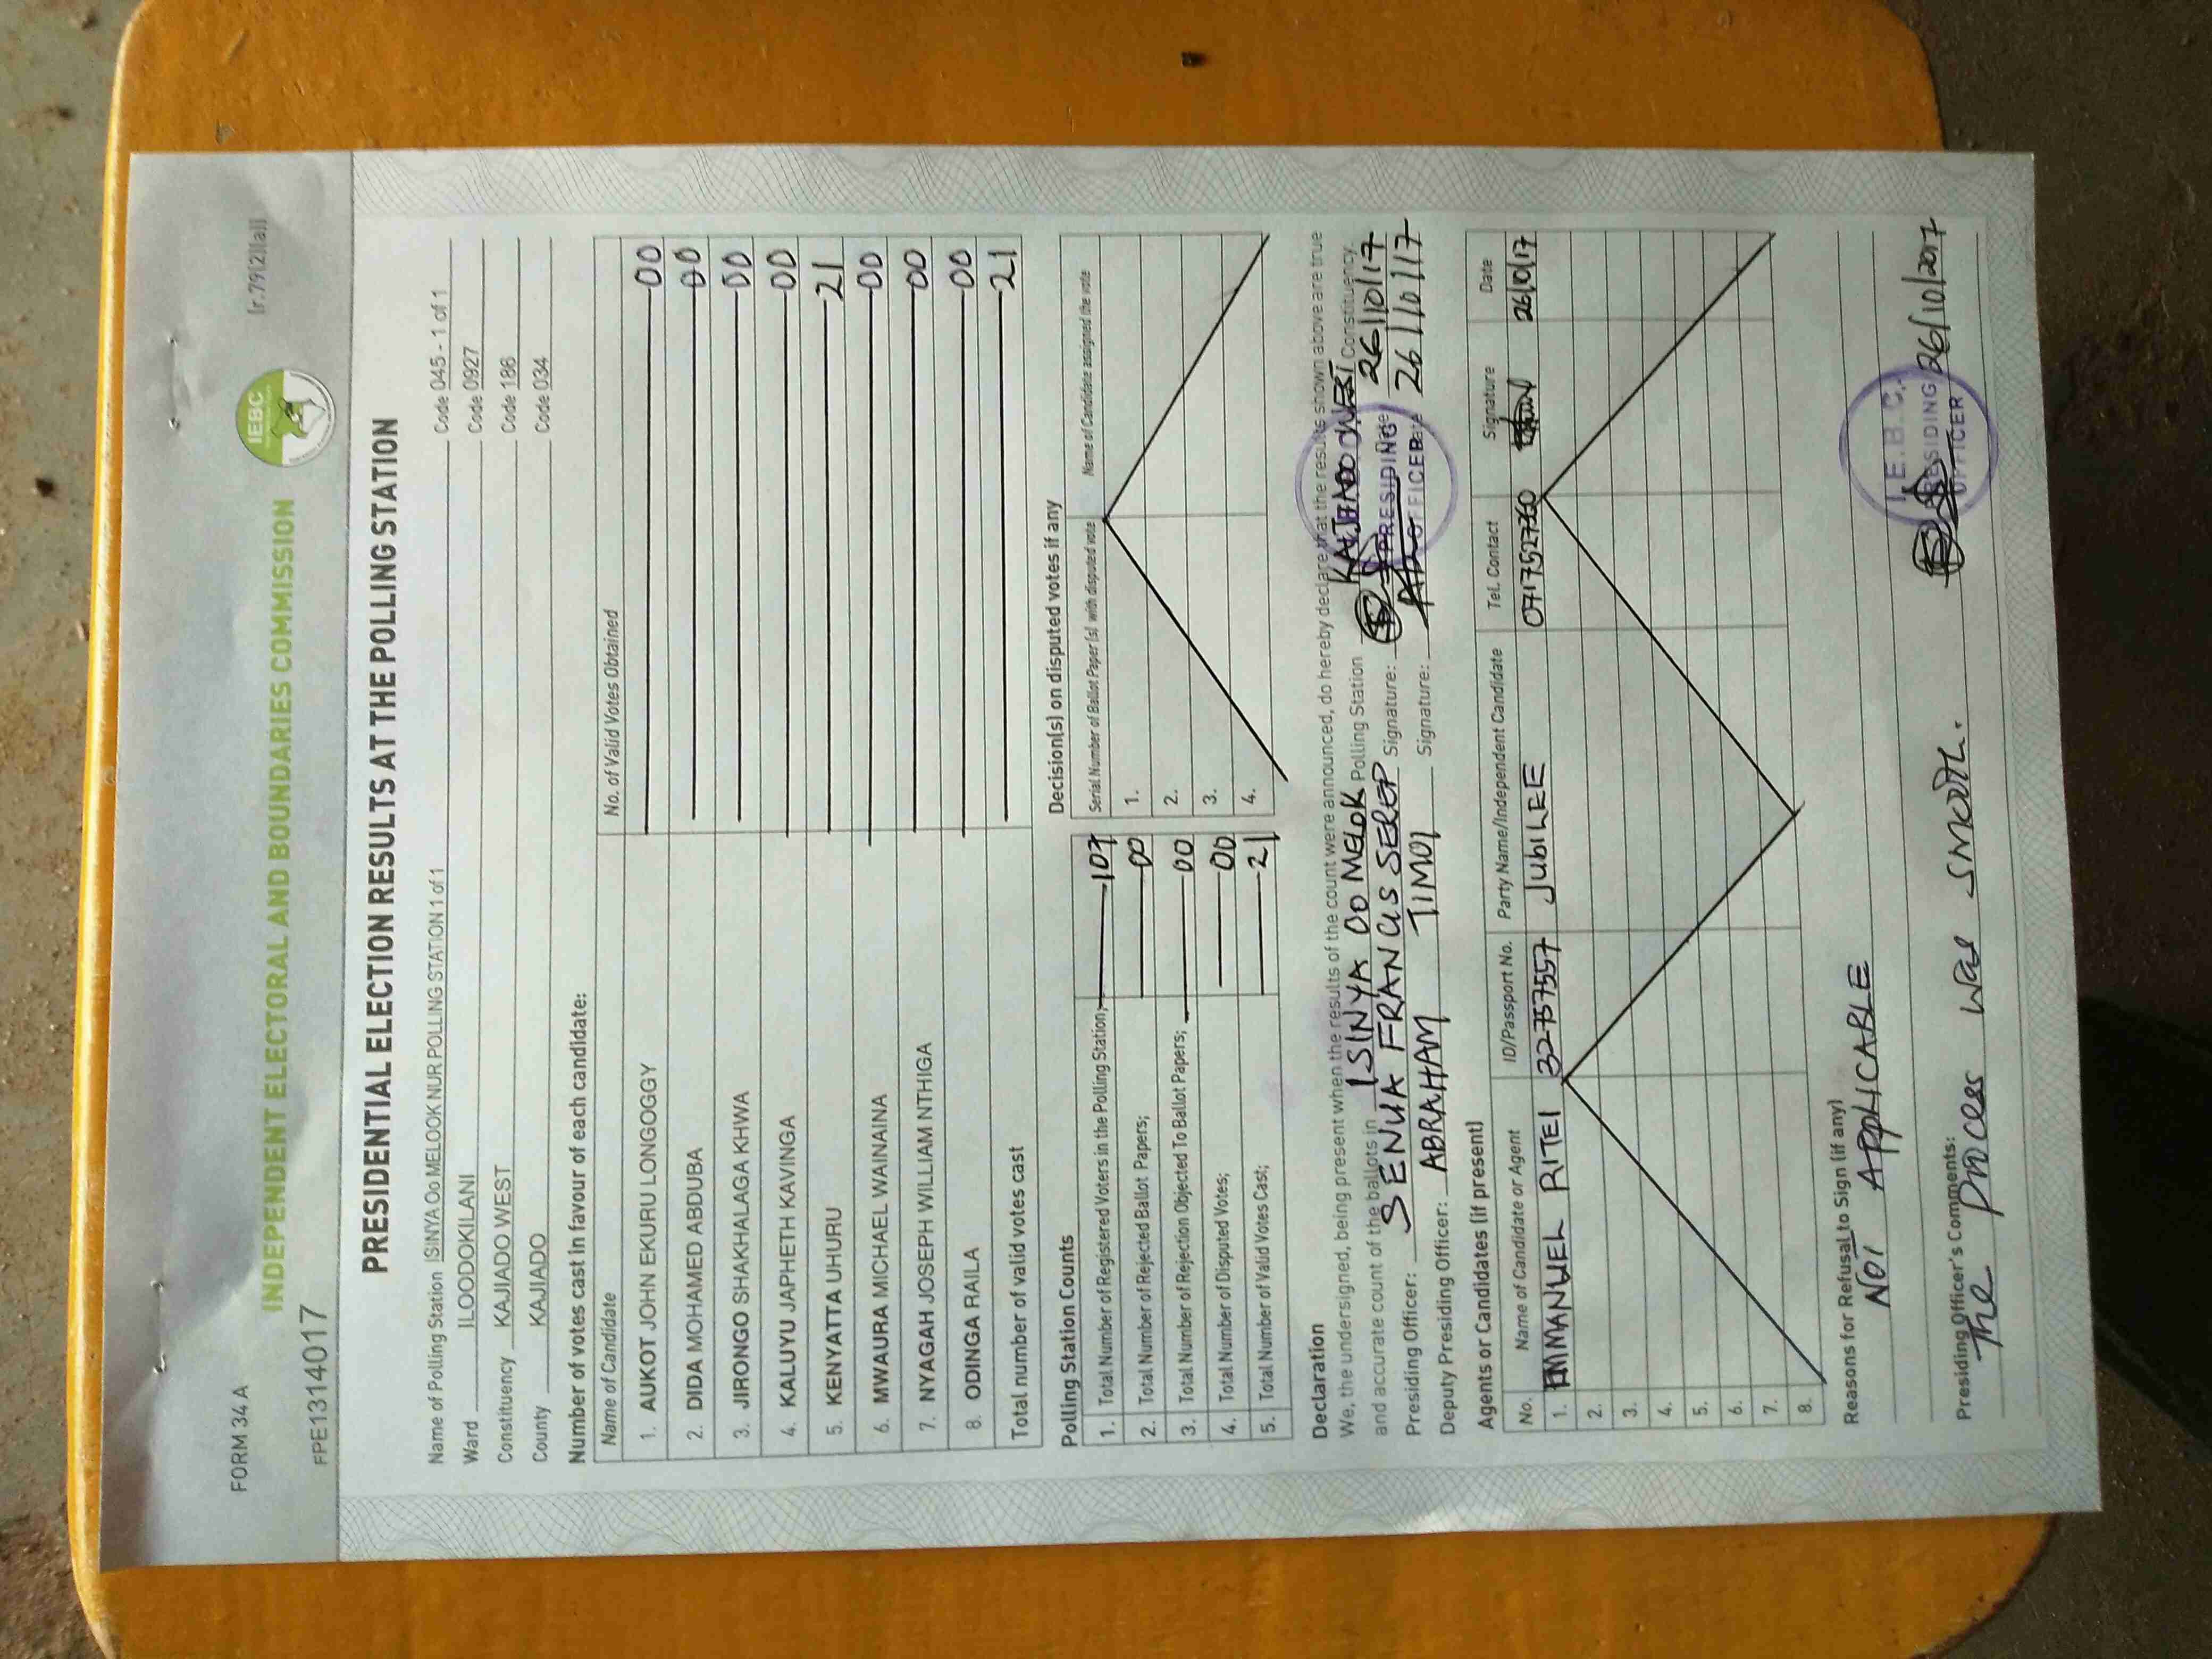 FORM 34 A
[r.79(2)(a)]
INDEPENDENT ELECTORAL AND BOUNDARIES COMMISSION
IEBC
FPE1314017
PRESIDENTIAL ELECTION RESULTS AT THE POLLING STATION
Name of Polling Station ISINYA Oo MELOOK NUR POLLING STATION 1 of 1 Code 045 - 1 of 1
Ward ILOODOKILANI Code 0927
Constituency KAJIADO WEST Code 186
County KAJIADO Code 034
Number of votes cast in favour of each candidate:
Name of Candidate No. of Valid Votes Obtained
1. AUKOT JOHN EKURU LONGOGGY 00
2. DIDA MOHAMED ABDUBA 00
3. JIRONGO SHAKHALAGA KHWA 00
4. KALUYU JAPHETH KAVINGA 00
5. KENYATTA UHURU 21
6. MWAURA MICHAEL WAINAINA 00
7. NYAGAH JOSEPH WILLIAM NTHIGA 00
8. ODINGA RAILA 00
Total number of valid votes cast 21
Polling Station Counts
1. Total Number of Registered Voters in the Polling Station; 107
2. Total Number of Rejected Ballot Papers; 00
3. Total Number of Rejection Objected To Ballot Papers; 00
4. Total Number of Disputed Votes; 00
5. Total Number of Valid Votes Cast; 21
Decision(s) on disputed votes if any
Serial Number of Ballot Paper (s) with disputed vote Name of Candidate assigned the vote
1.
2.
3.
4.
Declaration
We, the undersigned, being present when the results of the count were announced, do hereby declare that the results shown above are true
and accurate count of the ballots in ISINYA OO MELOK Polling Station KAJIADO WEST Constituency.
Presiding Officer: SENUA FRANCIS SEREP Signature: Date 26/10/17
Deputy Presiding Officer: ABRAHAM TIMOI Signature: Date 26/10/17
PRESIDING
OFFICER
Agents or Candidates (if present)
No. Name of Candidate or Agent ID/Passport No. Party Name/Independent Candidate Tel. Contact Signature Date
1. EMMANUEL RITEI 32757557 JUBILEE 26/10/17
2.
3.
4.
5.
6.
7.
8.
Reasons for Refusal to Sign (if any)
NOT APPLICABLE
Presiding Officer's Comments:
The process was smooth.
I.E.B.C.
PRESIDING
OFFICER
26/10/2017